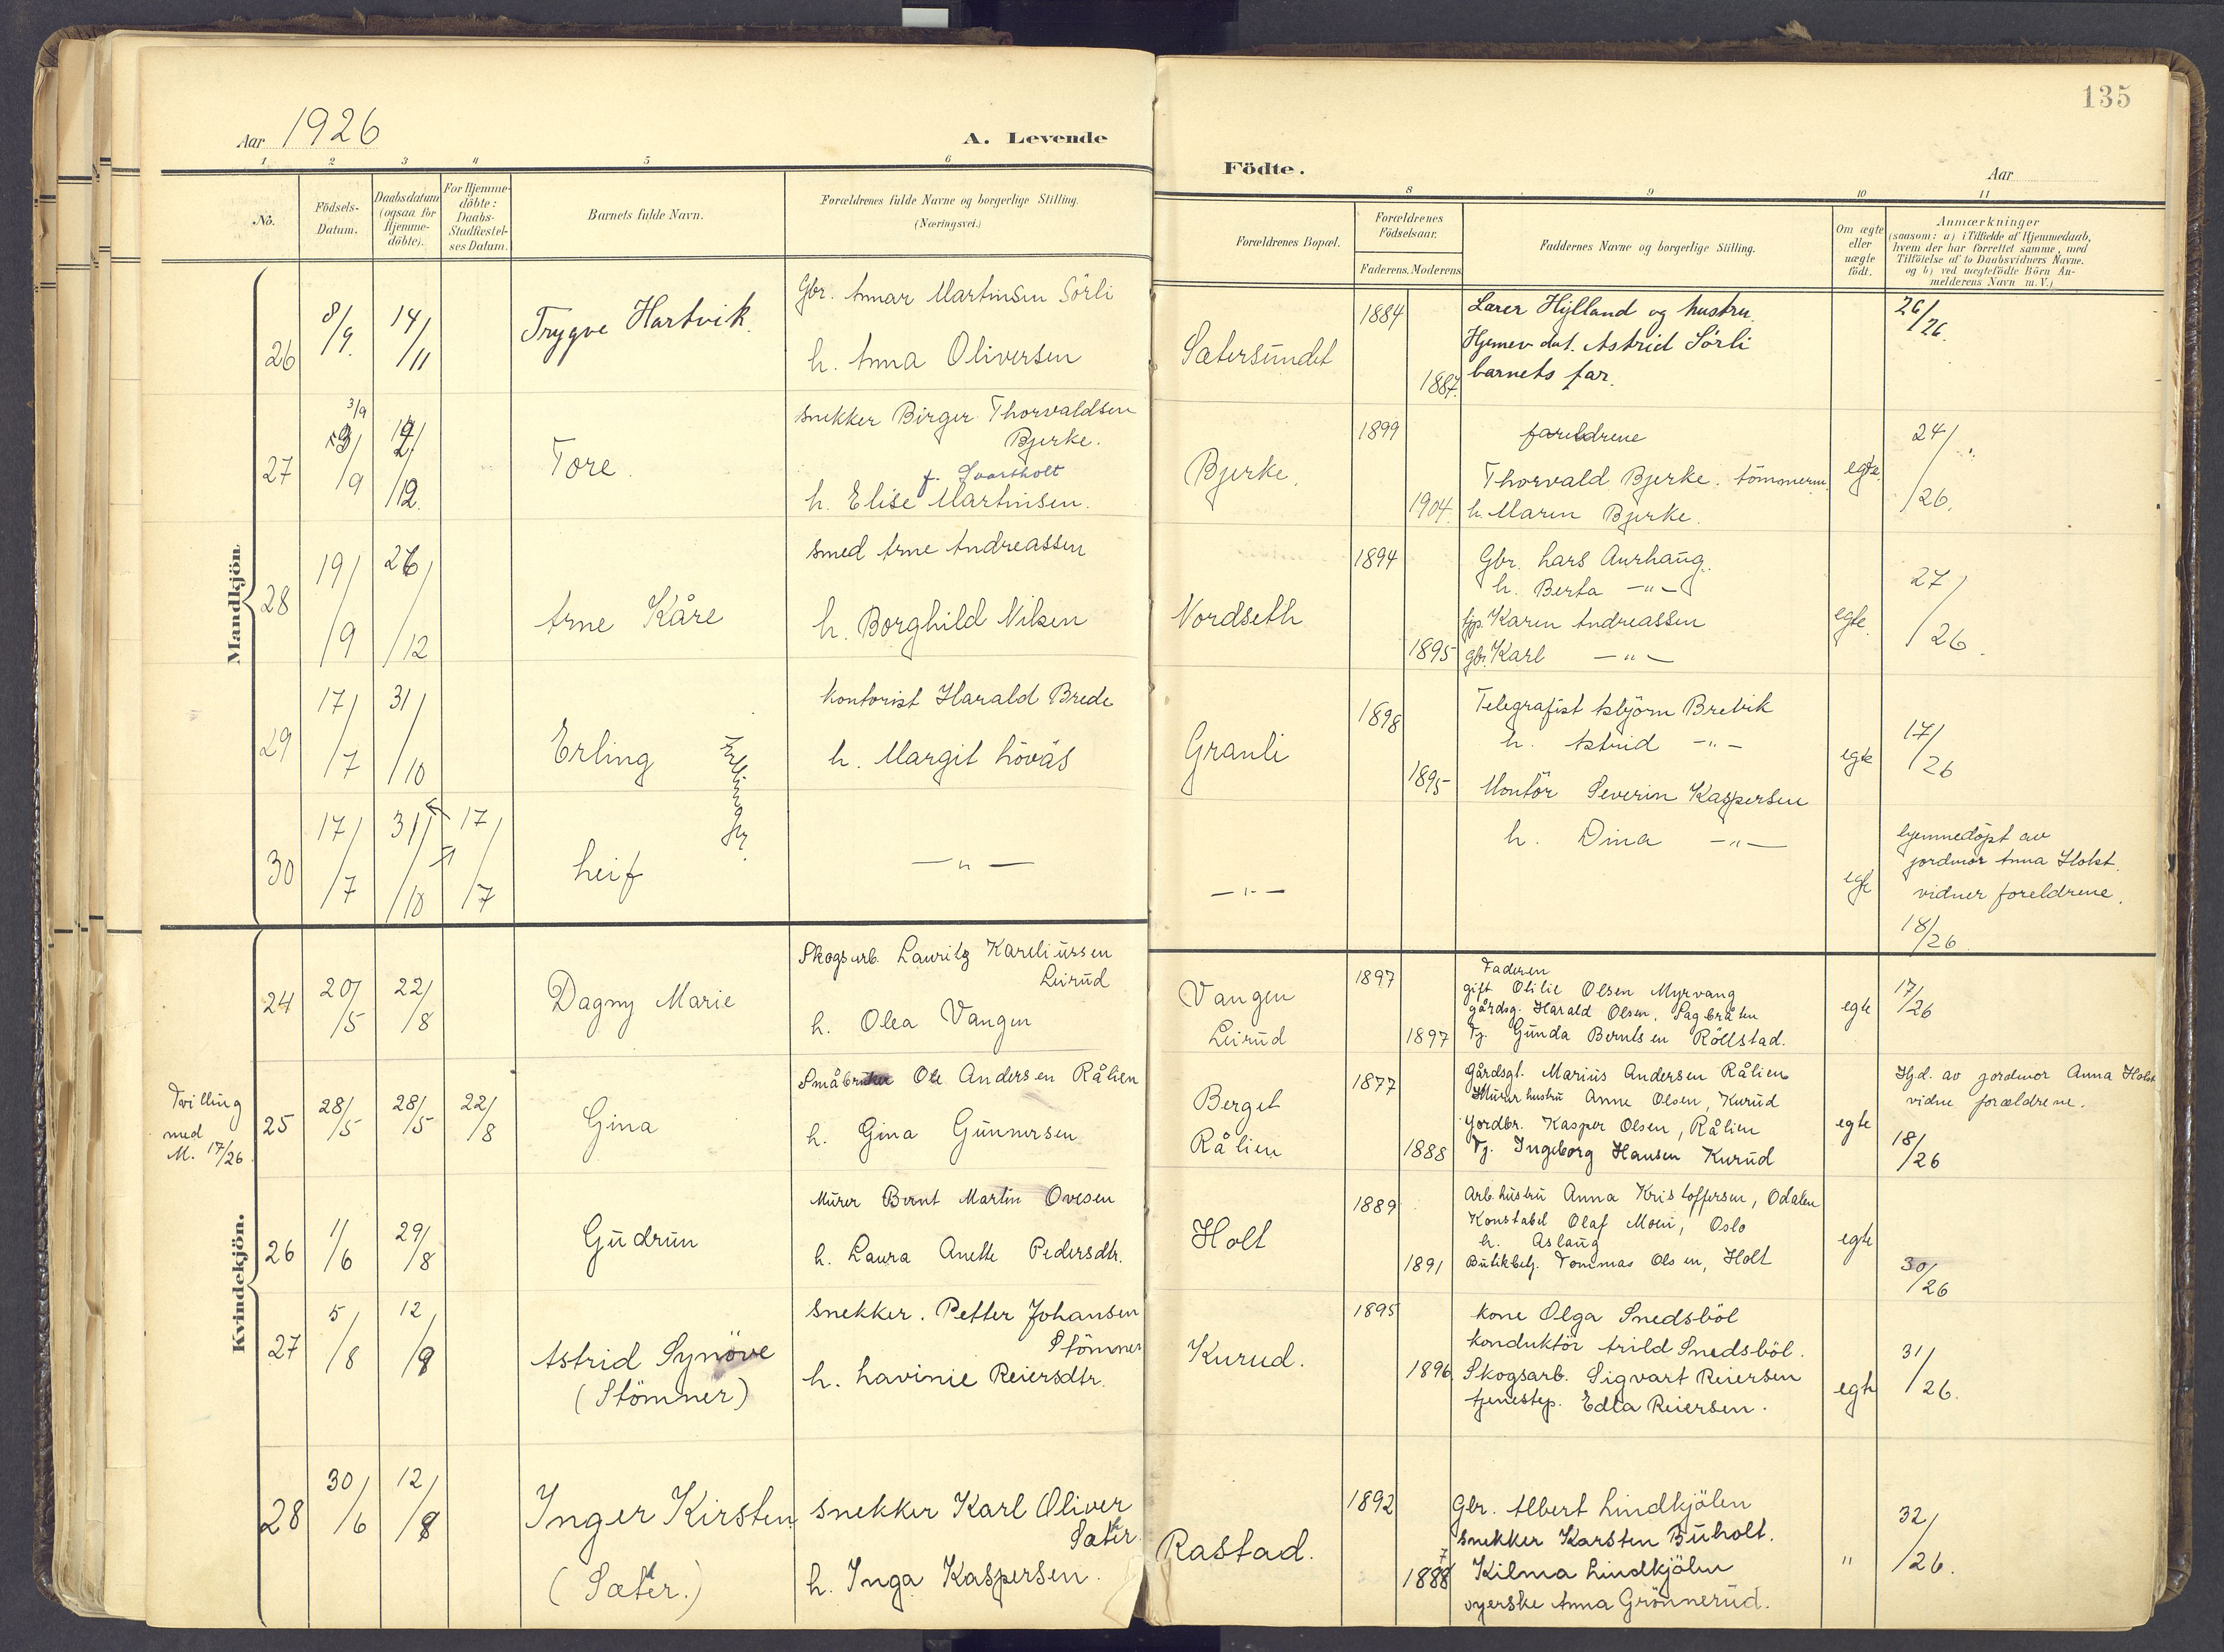 135
Aar 1926
A. Levende
Födte.
Aar
1 2 3 4 5 6
8 9 10 11
No.
Födsels-
Datum.
Daabsdatum
(ogsaa for
Hjemme-
döbte).
For Hjemme-
döbte:
Daabs-
Stadfæstel-
ses Datum.
Barnets fulde Navn.
Forældrenes fulde Navne og borgerlige Stilling.
(Næringsvei.)
Forældrenes Bopæl.
Forældrenes
Födselsaar.
Faderens. Moderens
Faddernes Navne og borgerlige Stilling.
Om ægte
eller
uægte
födt.
Anmærkninger
(saasom: a) i Tilfælde af Hjemmedaab,
hvem der har forrettet samme, med
Tilföielse af to Daabsvidners Navne.
og b) ved uægtefödte Börn An-
melderens Navn m. V.)
Mandkjön.
26 8/9. 14/11 Trygve Hartvik.
Gbr. Annar Martinsen Sörli
h. Anna Oliversen
Sætersundet
1884
1887.
Lærer Hylland og hustru.
Hjemmev. dat. Astrid Sörli
barnets far.
26/26.
27 3/9 /9 12/12 Tore.
snekker Birger Thorvaldsen
Bjerke.
f. Svartholt
h. Elise Martinsen.
Bjerke.
1899
1904.
foreldrene
Thorvald Bjerke. tömmerm.
h. Maren Bjerke.
egte.
24/26.
28 19/9 26/12 Arne Kåre
smed Arne Andreassen
h. Borghild Nilsen
Nordseth
1894
1895
Gbr. Lars Aurhaug.
h. Berta -"-
tjp. Karen Andreassen
gbr. Karl -"-
egte.
27/26.
29 17/7 31/10 Erling
Tvillinger.
kontorist Harald Brede
h. Margit Lövås
Granli
1898
1895
Telegrafist Asbjörn Brevik
h. Astrid -"-
Montör Severin Kaspersen
h. Dina -"-
egte
17/26
30 17/7 31/10 17/7 Leif
-"-
-"-
egte
hjemmedöpt av
jordmor Anna Holst.
vidner foreldrene.
18/26.
Kvindekjön.
24 20/5 22/8 Dagny Marie
Skogsarb. Lauritz Kareliussen
Leirud
h. Olea Vangen
Vangen
Leirud
1897
1897
Faderen
gift Olilie Olsen Myrvang
gårdsg. Harald Olsen, Sagbråten
Tj. Gunda Berntsen Röllstad.
egte
17/26
Tvilling
med
M. 17/26.
25 28/5 28/5 22/8 Gina
Småbruker Ole Andersen Rålien
h. Gina Gunnersen
Berget
Rålien
1877
1888
Gårdsgt. Marius Andersen Rålien
Murer hustru Anne Olsen, Kurud
Jordbr. Kasper Olsen, Rålien
Tj. Ingeborg Hansen Kurud
egte
Hjd. av jordmor Anna Holst
vidne forældrene.
18/26
26 1/6 29/8 Gudrun
Murer Bernt Martin Ovesen
h. Laura Anette Pedersdtr.
Holt
1889
1891
Arb. hustru Anna Kristoffersen, Odalen
Konstabel Olaf Moen, Oslo
h. Aslaug
Butikbetj. Tommas Olsen, Holt
egte
30/26
27 5/8 12/9 Astrid Synöve
(Stömner)
snekker. Petter Johansen
Stömner
h. Lavinie Reiersdtr.
Kurud.
1895
1896
kone Olga Snedsböl
konduktör Arild Snedsböl.
Skogsarb. Sigvart Reiersen
tjenestep. Edla Reiersen.
egte
31/26.
28 30/6 12/9 Inger Kirsten
(Sæter.)
snekker Karl Oliver
Sæter.
h. Inga Kaspersen.
Rastad.
1892
7
1888
Gbr. Albert Lindkjölen
snekker Karsten Buholt.
Kilma Lindkjölen
syerske Anna Grönnerud.
"
32/26.